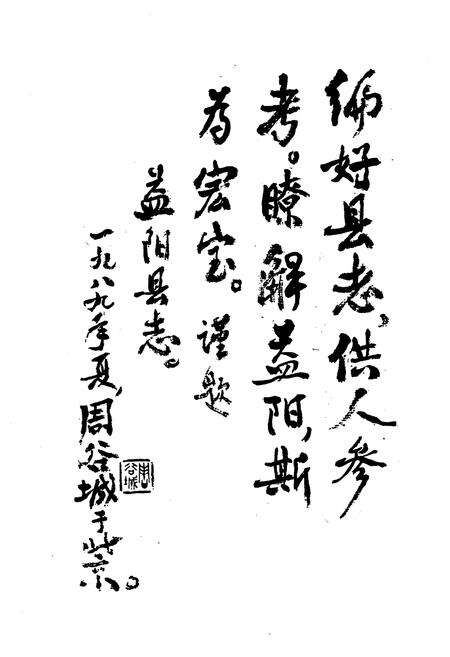 编好县志,供人参
考。瞭解益阳,斯
为宏宝。谨题
益阳县志。
一九八九年夏,周谷城于北京。
周谷城